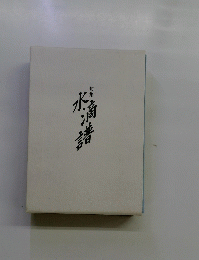 水滴譜